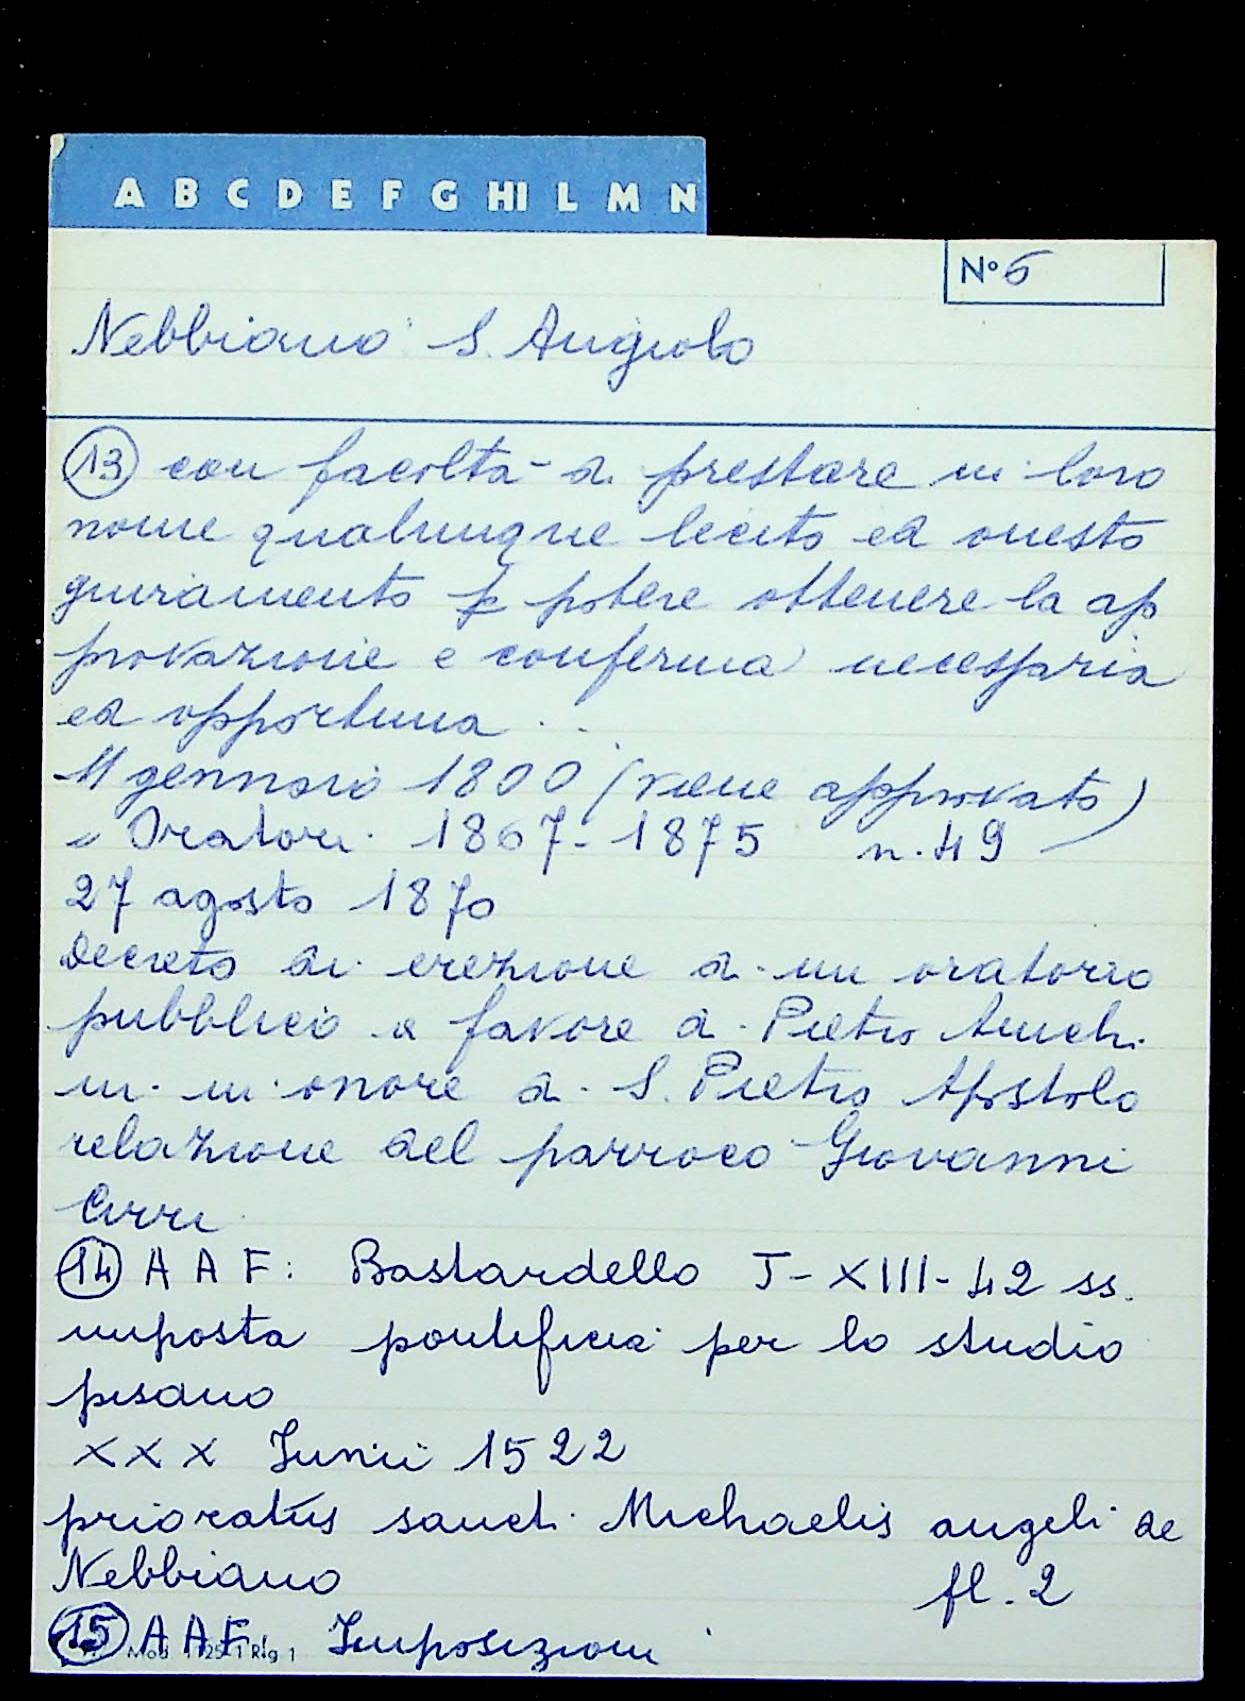 A B C D E F G HI L M N
N° 6
Nebbiano S. Angiolo
13 con facoltà di prestare in loro
nome qualunque lecito ed onesto
giuramento p potere ottenere la ap
provazione e conferma necessaria
ed opportuna
11 gennaio 1800 (viene approvato)
" Oratori 1867-1875 n. 49
27 agosto 1870
Decreto di erezione di un oratorio
pubblico a favore di Pietro
in onore di S. Pietro Apostolo
relazione del parroco Giovanni
Cirri
14 A A F: Bastardello J-XIII-42 ss.
imposta pontificia per lo studio
pisano
XXX Junii 1522
prioratus sancti Michaelis angeli de
Nebbiano fl. 2
15 A A F. Imposizioni
Mod. 1125-1 Rig 1